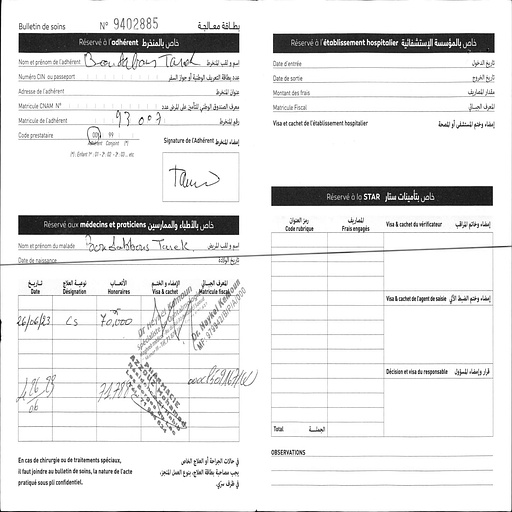 Bulletin de soins N° 9402885 بطاقة معالجة
Réservé à l'adhérent خاص بالمنخرط
Nom et prénom de l'adhérent Tarek إسم و لقب المنخرط
Numéro CIN ou passeport عدد بطاقة التعريف الوطنية أو جواز السفر
Adresse de l'adhérent عنوان المنخرط
Matricule CNAM N° معرف الصندوق الوطني للتأمين على المرض عدد
Matricule de l'adhérent 93 007 رقم المنخرط
Code prestataire 00 99 Signature de l'Adhérent إمضاء المنخرط
Adhérent Conjoint (*)
(*): Enfant 1er : 01 - 2e : 02 - 3e : 03 ... etc
Réservé aux médecins et praticiens خاص بالأطباء والممارسين
Nom et prénom du malade Tarek إسم و لقب المريض
Date de naissance تاريخ الولادة
تاريخ نوعية العلاج الأتعاب الإمضاء و الختم المعرف الجبائي
Date Désignation Honoraires Visa & cachet Matricule fiscal
26/06/23 Cs 70,000
Dr Haykel Kamoun
PHARMACIE
En cas de chirurgie ou de traitements spéciaux,
il faut joindre au bulletin de soins, la nature de l'acte
pratiqué sous pli confidentiel.
في حالات الجراحة أو العلاج الخاص
يجب مصاحبة بطاقة العلاج، بنوع العمل المنجز،
في ظرف سري.
Réservé à l'établissement hospitalier خاص بالمؤسسة الإستشفائية
Date d'entrée تاريخ الدخول
Date de sortie تاريخ الخروج
Montant des frais مقدار المصاريف
Matricule Fiscal المعرف الجبائي
Visa et cachet de l'établissement hospitalier إمضاء وختم المستشفى أو المصحة
Réservé à la STAR خاص بتأمينات ستار
رمز العنوان المصاريف
Code rubrique Frais engagés Visa & cachet du vérificateur إمضاء وخاتم المراقب
Visa & cachet de l'agent de saisie إمضاء وختم الضبط الآلي
Décision et visa du responsable قرار وإمضاء المسؤول
Total الجملة
OBSERVATIONS